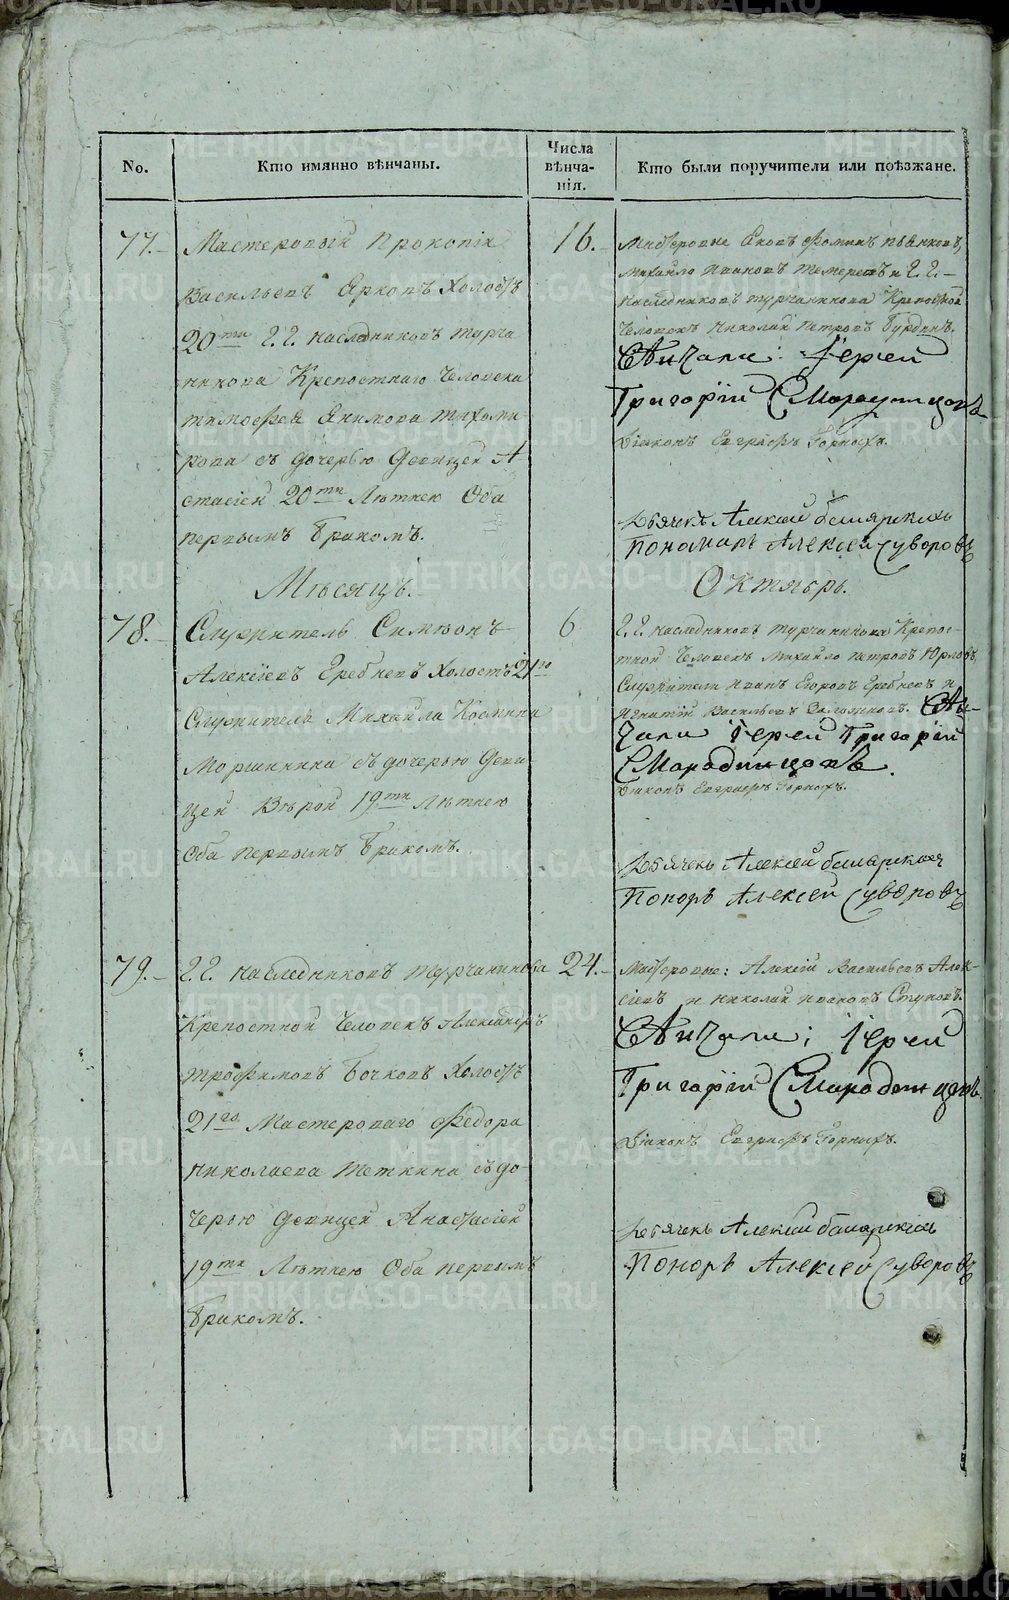 No.
Кто имянно вѣнчаны.
Числа
вѣнча-
нія.
Кто были поручители или поѣзжане.
77.
Мастеровый Прокопій
Васильевъ Ярковъ Холостъ
20ти Г.Г. наследниковъ турча
нинова Крепостнаго Человека
тимофея Якимова тихоми
рова съ дочерью девицей А
стасіей 20ти Лѣтнею Оба
первымъ бракомъ.
16.
Мастеровые Яковъ Фоминъ
Михайло Ивановъ и Г.Г.
наследниковъ турчанинова Крепостной
Человекъ Николай Петровъ Бурдинъ.
Вѣнчали: Іерей
Григорій Смарадинцовъ
Діаконъ Евграфъ Горныхъ.
Дьячекъ Алексей
Пономарь Алексей Суворовъ
Мѣсяцъ.
Октябрь.
78.
Служитель Симеонъ
Алексіевъ Гребневъ Холостъ 21го
Служителя Михаила Космина
Моршинина съ дочерою деви
цей Верой 19ти Лѣтнею
Оба первымъ бракомъ.
6
Г.Г. наследниковъ турчанинова Крепос-
тной Человекъ Михайло петровъ Юрловъ,
Служители иванъ Егоровъ Гребневъ и
Игнатій Васильевъ Вѣн-
чали Іерей Григорій
Смарадинцовъ.
Діаконъ Евграфъ Горныхъ.
Дьячекъ Алексей
Поноръ Алексей Суворовъ
79.
Г.Г. наследниковъ турчанинова
Крепостной Человекъ Александръ
трофимовъ Бочковъ Холостъ
21го Мастероваго Федора
николаева теткина съ до-
черью девицей Анастасіей
19ти Лѣтнею Оба первымъ
бракомъ.
24.
Мастеровые: Алексій Васильевъ Алек-
сіевъ и николай ивановъ Ступовъ.
Вѣнчали; Іерей
Григорій Смарадинцовъ.
Діаконъ Евграфъ Горныхъ.
Дьячекъ Алексей
Поноръ Алексей Суворовъ
METRIKI.GASO-URAL.RU